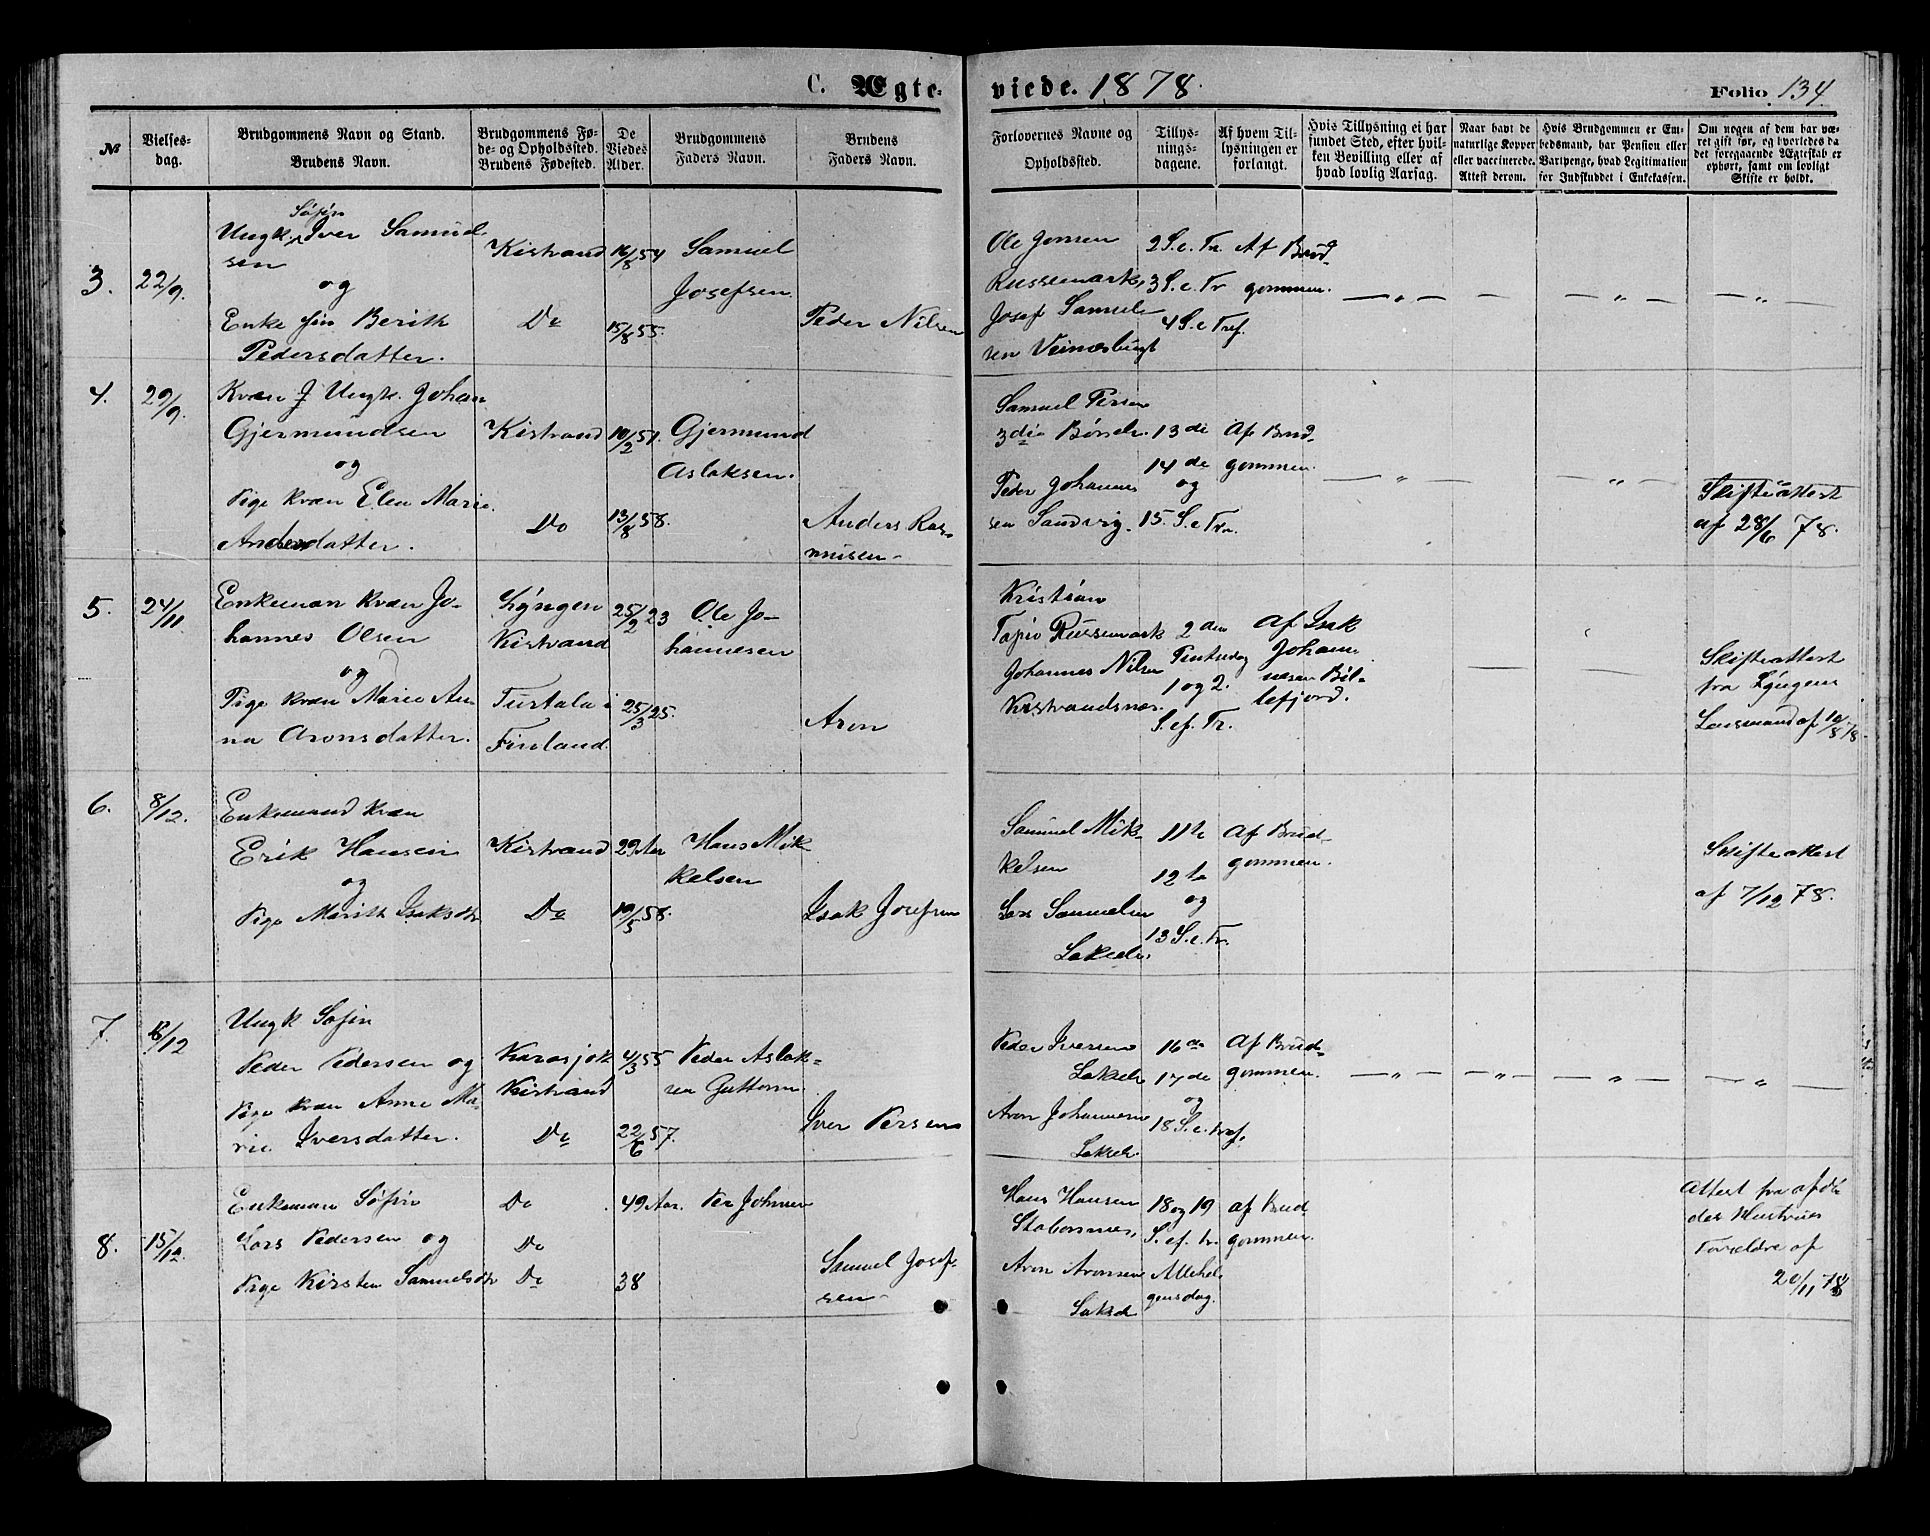 C. Ægteviede. 1878.
Folio 134
№
Vielsesdag.
Brudgommens Navn og Stand.
Brudens Navn.
Brudgommens Føde- og Opholdssted.
Brudens Fødested.
De Viedes Alder.
Brudgommens Faders Navn.
Brudens Faders Navn.
Forlovernes Navne og Opholdssted.
Tillysningsdagene.
Af hvem Tillysningen er forlangt.
Hvis Tillysning ei har fundet Sted, efter hvilken Bevilling eller af hvad lovlig Aarsag.
Naar havt de naturlige Kopper eller vaccinerede. Attest derom.
Hvis Brudgommen er Embedsmand, har Pension eller Vartpenge, hvad Legitimation for Indskuddet i Enkekassen.
Om nogen af dem har været gift før, og hvorledes da det foregaaende Ægteskab er ophørt, samt om lovligt Skifte er holdt.
3.
22/9.
Søfin
Ungk. Iver Samuel
sen
og
Enke fin Berith
Pedersdatter.
Kistrand
Do
16/8 54
15/8 55.
Samuel
Josefsen.
Peder Nilsen
Ole Jensen
Russemark,
Josef Samuel
sen Veinesbugt
2 S. e. Tr.
3 S. e. Tr
4 S. e Tref.
Af Brud
gommen.
— „ —
—
— „ —
— „ —
4.
29/9.
Kvæn Ungk. Johan
Gjermundsen
og
Pige kvæn Elen Marie
Andersdatter.
Kistrand
Do
10/2 51.
13/8 58.
Gjermund
Aslaksen.
Anders Ras
musen
Samuel Persen
Børselv.
Peder Johannes
sen Sandvig.
13 de
14 de
og
15. S. e Tr.
Af Brud
gommen.
— „ —
— „ —
Skifteattest
af 28/6 78.
5.
24/11
Enkeman kvæn Jo-
hannes Olsen
og
Pige kvæn Marie An
na Aronsdatter.
Lyngen
Kistrand
Turtala i
Finland.
25/2 23
25/3 25.
Ole Jo-
hannesen
Aron
Kristian
Tapio Russemark
Johannes Nilsen
Kistrandsnæs.
2 den
1 og 2.
S. ef. Tr.
Af Isak
Johann
nesen Bil-
lefjord.
—
—
Skifteattest
fra Lyngens
Lensmand af 10/8 78.
6.
8/12.
Enkemand kvæn
Erik Hansen
og
Pige Marith Isaksdtr
Kistrand
Do
29 Aar
19/5 58.
Hans Mik
kelsen
Isak Josefsen
Samuel Mik-
kelsen
Lars Samuelsen
Lakselv.
11te
12 te
og
13 S. e. Tr.
Af Brud-
gommen.
Skifteattest
af 7/12 78.
7.
8/12
Ungk Søfin
Peder Pedersen og
Pige kvæn Anne Ma-
rie Iversdatter.
Karasjok
Kistrand
Do
4/3 55
22/6 57.
Peder Aslak-
sen Guttorm
Iver Persen
Peder Iversen
Lakselv
Aron Johannesen
Lakselv
16 de
17 de
og
18 S. e. tref.
Af Brud-
gommen.
— „ —
— „ —
— „ —
— „ —
8.
15/12.
Enkeman Søfin
Lars Pedersen og
Pige Kirsten Samuelsdtr
Do
Do
Do
49 Aar.
38
Per Johnsen
Samuel Josef
sen
Hans Hansen
Stabursnes,
Aron Aronsen
Lakselv
18 og 19
S. ef. tr.
Allehel
gensdag.
af Brud
gommen.
Attest fra afdø
des Hustrues
Forældre af
20/11 78